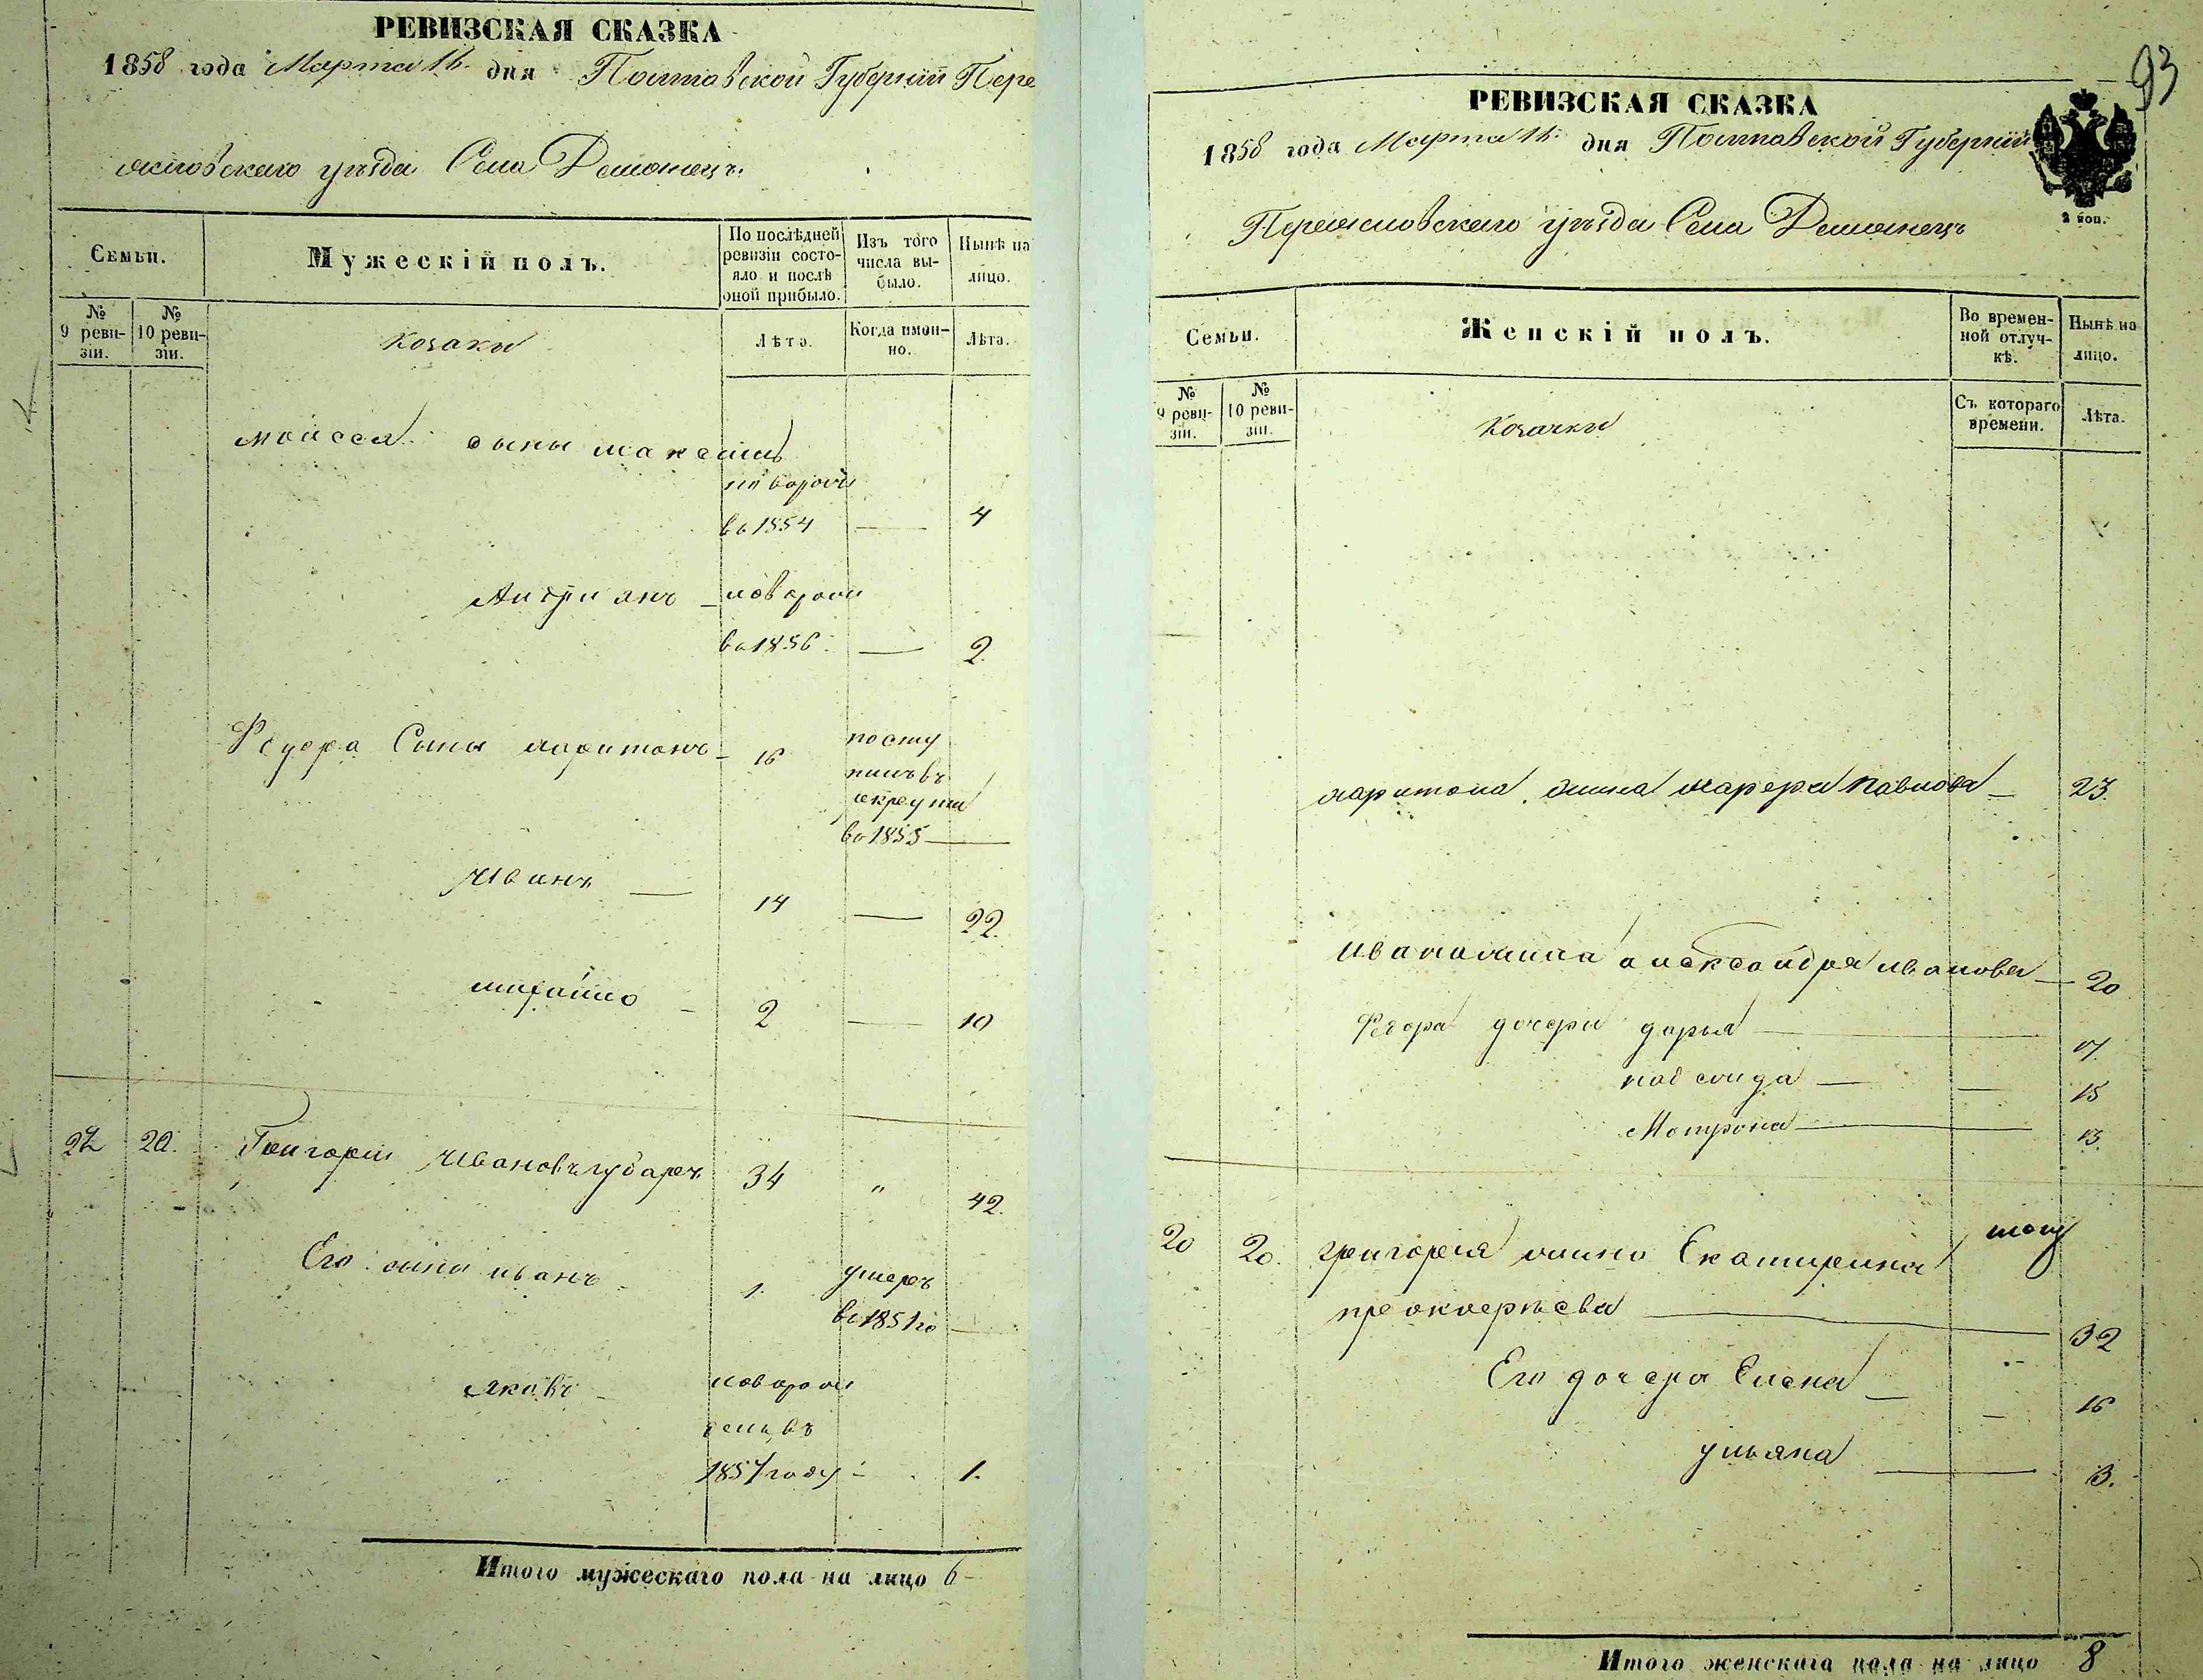 РЕВИЗСКАЯ СКАЗКА
1858 года Марта 16. дня Полтавской Губернии Пере
яславскаго уезда Села Демянецъ.
Семьи.
Мужескій полъ.
По послѣдней ревизіи состояло и послѣ оной прибыло.
Изъ того числа выбыло.
Нынѣ на лицо.
№ 9 ревизіи.
№ 10 ревизіи.
Козаки
Лѣта.
Когда именно.
Лѣта.
Моисея сыны Максимъ
новорож
въ 1854 — 4
Андриянъ — новорож
въ 1856 — 2.
Федора Сыны Харитонъ — 16 посту
пилъ въ
рекруты
въ 1855 —
Иванъ — 14 — 22.
Михайло — 2 — 10
27 20. Григорий Ивановъ Губарь 34 " 42.
Его сыны иванъ 1. умеръ
въ 1851 го —
Яковъ — новорож
денъ въ
1857 году — 1.
Итого мужескаго пола на лицо 6
93
РЕВИЗСКАЯ СКАЗКА
1858 года Марта 16. дня Полтавской Губернии
Переяславскаго уезда Села Демянецъ
2 коп.
Семьи.
Женскій полъ.
Во временной отлучкѣ.
Нынѣ на лицо.
№ 9 ревизіи.
№ 10 ревизіи.
Козачки
Съ котораго времени.
Лѣта.
Харитона жина Павлова — 23.
Ивана жина Александра иванова — 20
Федора дочери дарья — 17.
— 15
Мотрона — 13.
20 20. Григория жина Екатирина
— 32
Его дочери Елена — 16
ульяна — 3.
Итого женскаго пола на лицо 8